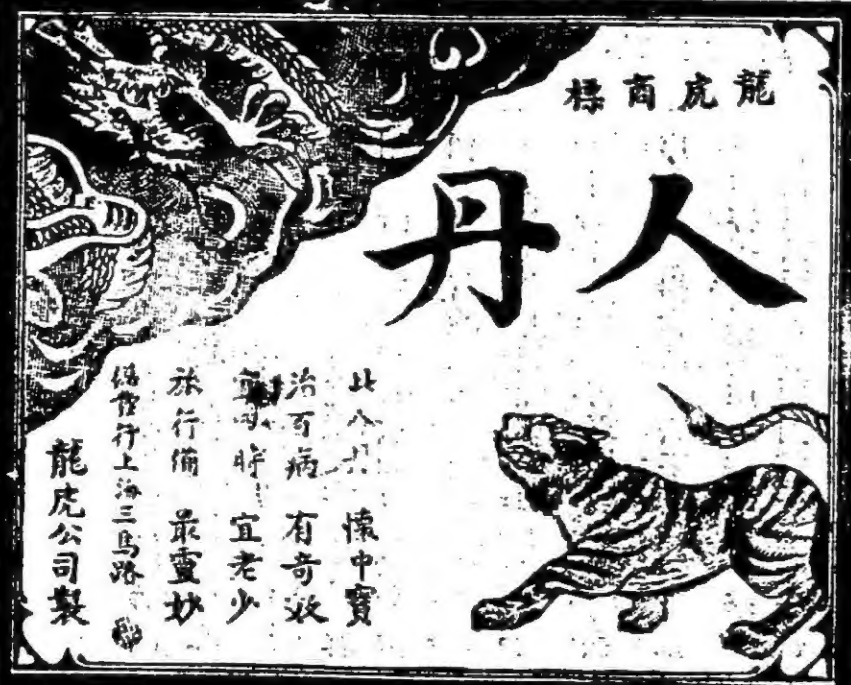 龍虎商標
人丹
此人丹 懷中寶
治百病 有奇效
四時 宜老少
旅行備 最靈妙
行上海三馬路
龍虎公司製